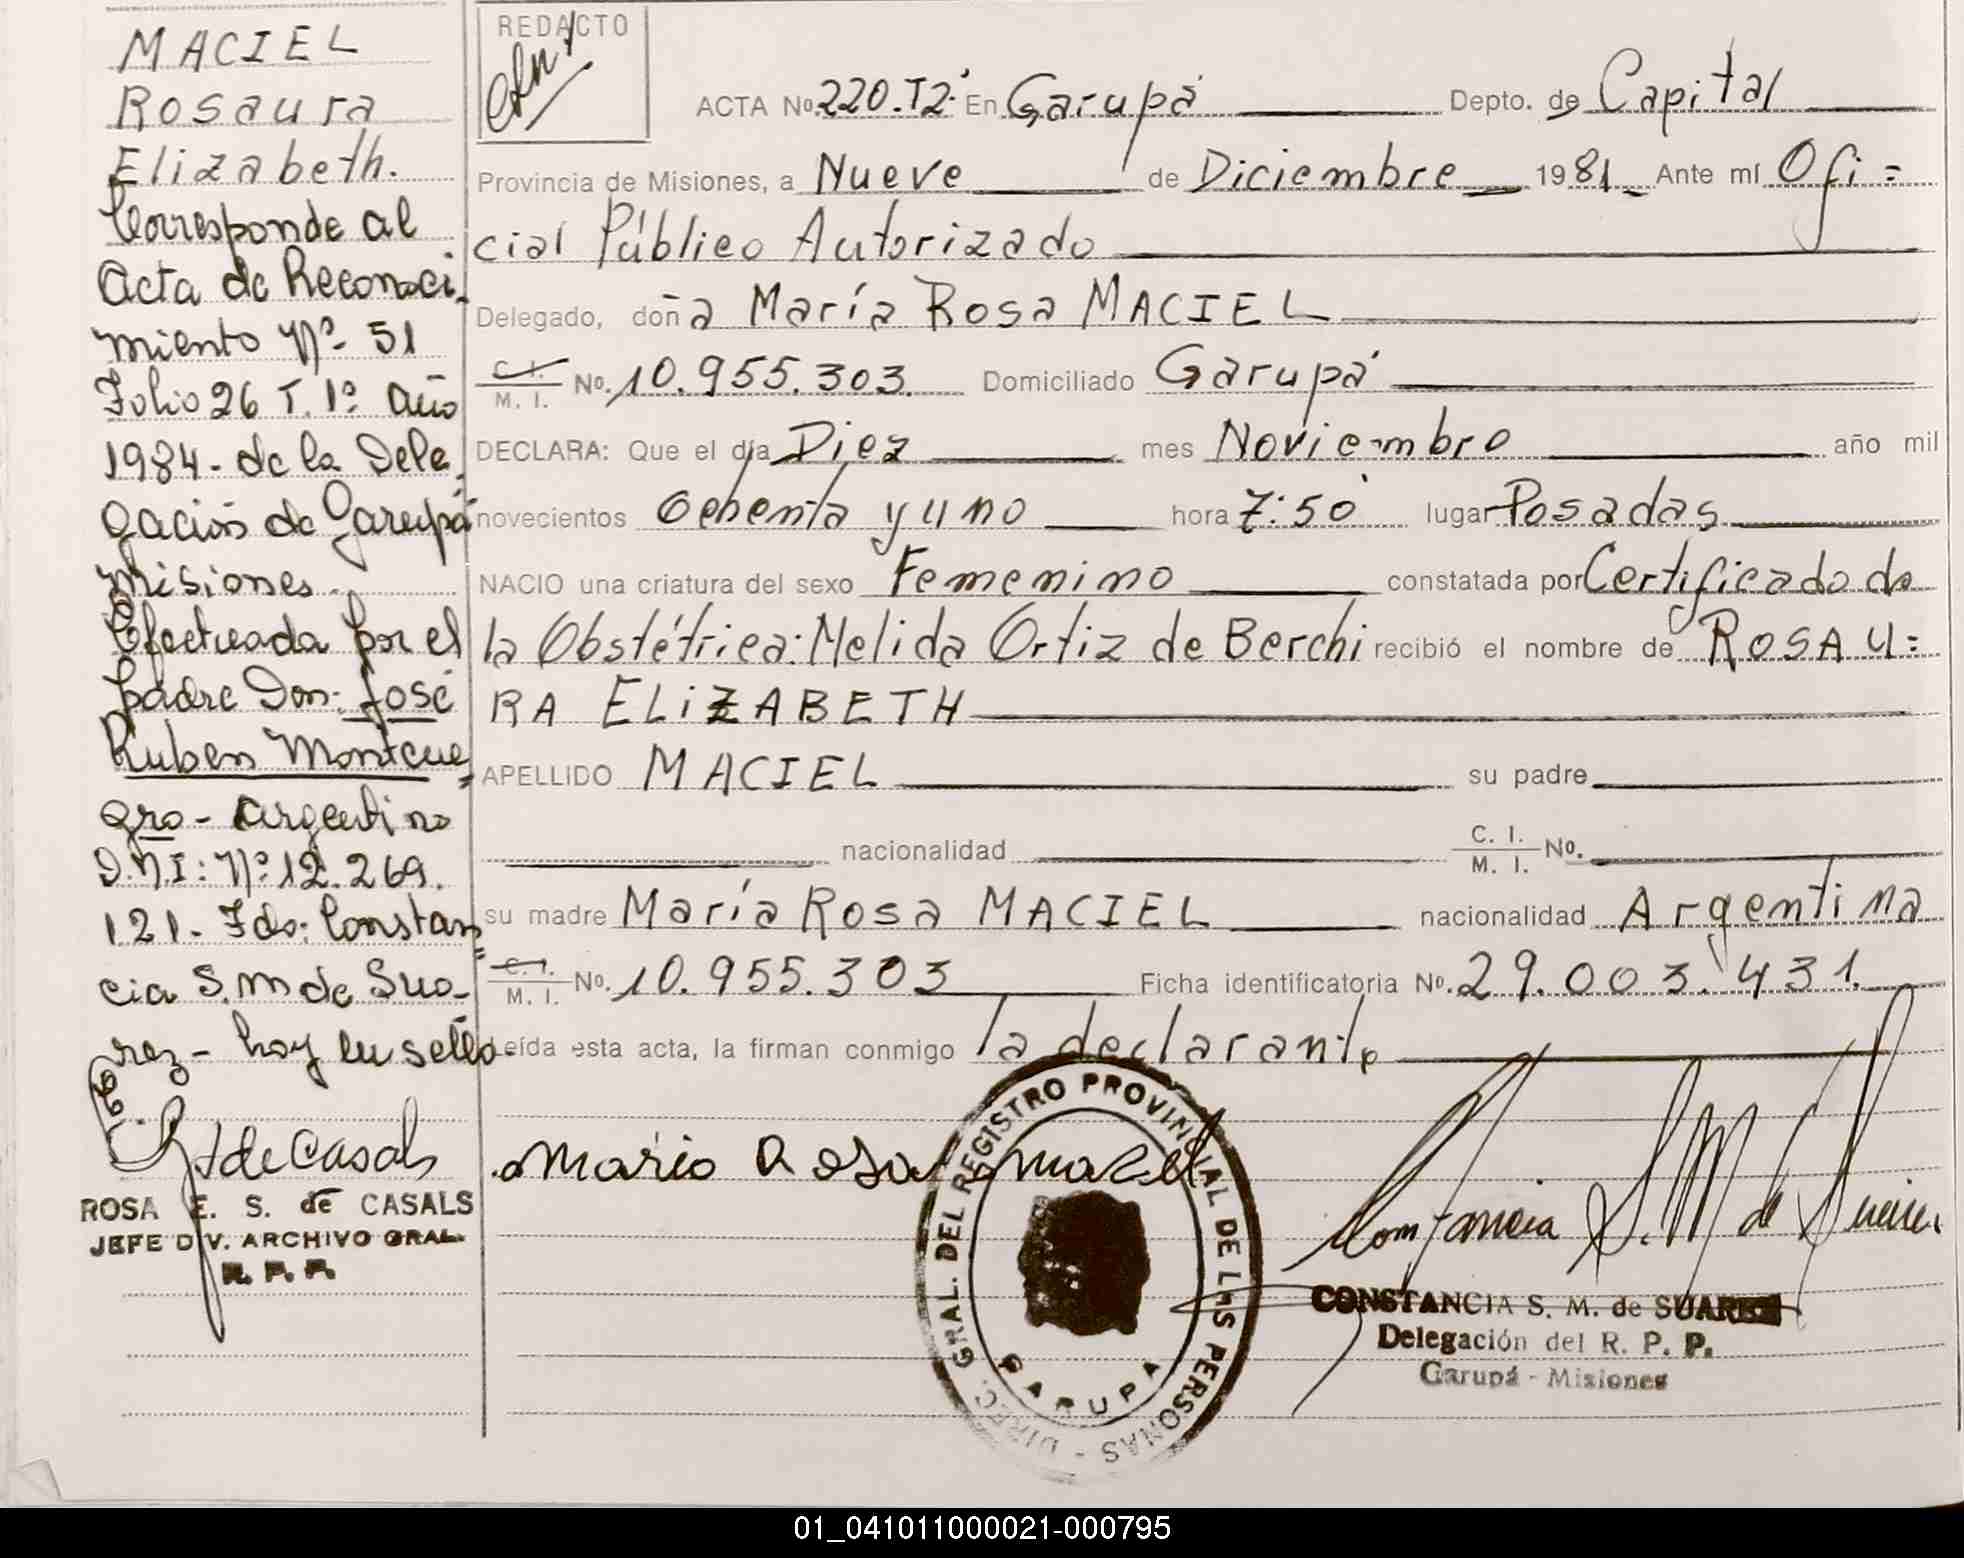 MACIEL
Rosaura
Elizabeth.
Corresponde al
Acta de Reconoci=
miento Nº 51
Folio 26 T. 1º año
1984 - de la Dele=
gación de Garupá
Misiones.
Efectuada por el
padre Don: José
Ruben Montene=
gro - argentino
D.N.I: Nº 12.269.
121 - Fdo: Constan=
cia S.M de Sua-
rez - hoy su sello.
ROSA E. S. de CASALS
JEFE DIV. ARCHIVO GRAL.
R. P. P.
REDACTO
ACTA No. 220.T2º En Garupá Depto. de Capital
Provincia de Misiones, a Nueve de Diciembre 1981 Ante mí Ofi=
cial Público Autorizado
Delegado, doña María Rosa MACIEL
C. I. / M. I. No. 10.955.303. Domiciliado Garupá
DECLARA: Que el día Diez mes Noviembre año mil
novecientos Ochenta y uno hora 7:50 lugar Posadas
NACIO una criatura del sexo Femenino constatada por Certificado de
la Obstétrica: Melida Ortiz de Berchi recibió el nombre de ROSAU=
RA ELIZABETH
APELLIDO MACIEL su padre
nacionalidad C. I. / M. I. No.
su madre María Rosa MACIEL nacionalidad Argentina
C. I. / M. I. No. 10.955.303 Ficha identificatoria No. 29.003.431.
Leída esta acta, la firman conmigo la declarante
DIREC. GRAL. DEL REGISTRO PROVINCIAL DE LAS PERSONAS -
GARUPA
CONSTANCIA S. M. de SUAREZ
Delegación del R. P. P.
Garupá - Misiones
01_041011000021-000795